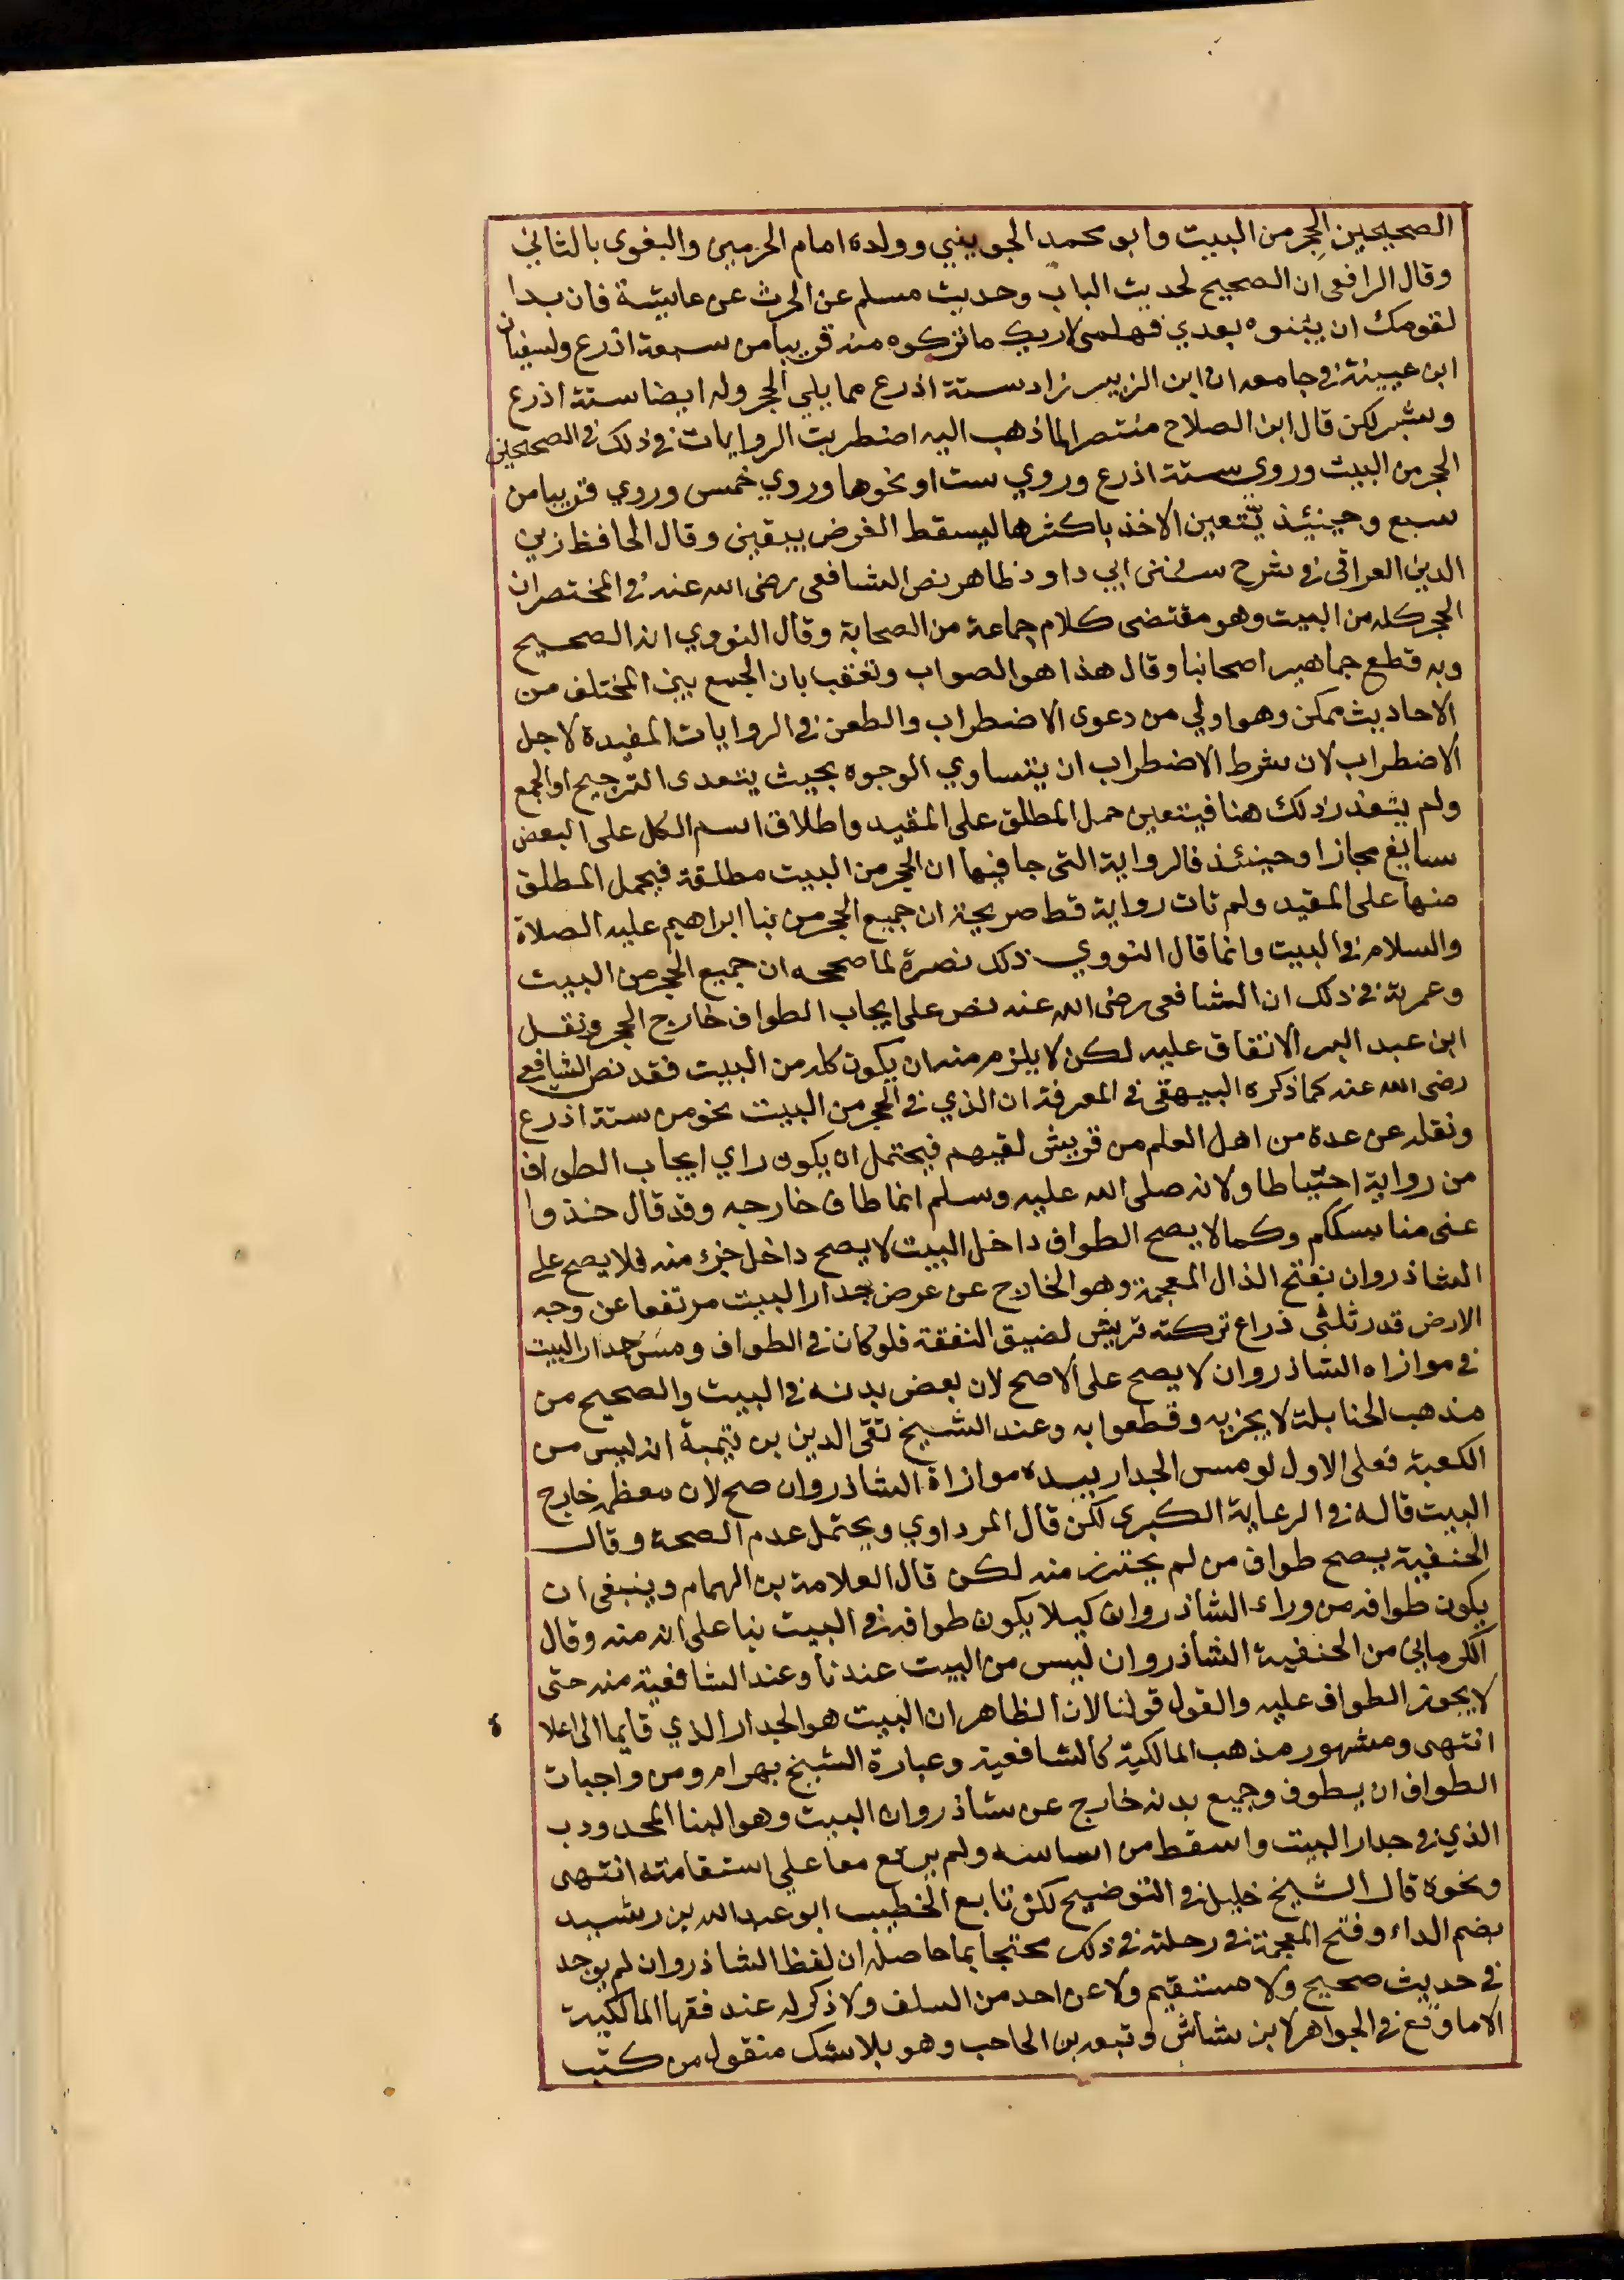 الصحيحين الحِجر من البيت وابو محمد الجويني وولده امام الحرمين والبغوى بالثاني
وقال الرافعى ان الصحيح لحديث الباب وحديث مسلم عن الحرث عن عايشة فان بدا
لقومك ان يبنوه بعدي فهلمى لاريك ما تركوه منه قريبا من سبعة اذرع ولسفيان
ابن عيينة في جامعه ان ابن الزبير زاد ستة اذرع مما يلي الحجر وله ايضا ستة اذرع
وشبر لكن قال ابن الصلاح منتصرا لما ذهب اليه اضطربت الروايات في ذلك في الصحيحين
الحجر من البيت وروي ستة اذرع وروي ست او نحوها وروي خمس وروي قريبا من
سبع وحينيذ يتعين الاخذ باكثرها ليسقط الفرض بيقين وقال الحافظ زين
الدين العراقى في شرح سنن ابي داود ظاهر نص الشافعى رضى الله عنه في المختصر ان
الحجر كله من البيت وهو مقتضى كلام جماعة من الصحابة وقال النووي انه الصحيح
وبه قطع جماهير اصحابنا وقال هذا هو الصواب وتعقب بان الجمع بين المختلف من
الاحاديث ممكن وهو اولي من دعوى الاضطراب والطعن في الروايات المقيدة لاجل
الاضطراب لان شرط الاضطراب ان يتساوي الوجوه بحيث يتعدى الترجيح او الجمع
ولم يتعذر ذلك هنا فيتعين حمل المطلق على المقيد واطلاق اسم الكل على البعض
سايغ مجازا وحينئذ فالرواية التى جا فيها ان الحجر من البيت مطلقة فيحمل المطلق
منها على المقيد ولم تات رواية قط صريحة ان جميع الحجر من بنا ابراهيم عليه الصلاة
والسلام في البيت وانما قال النووي ذلك نصرة لما صححه ان جميع الحجر من البيت
وعمرته في ذلك ان الشافعى رضى الله عنه نص على ايجاب الطواف خارج الحجر ونقل
ابن عبد البر الاتفاق عليه لكن لا يلزم منه ان يكون كله من البيت فقد نص الشافعي
رضى الله عنه كما ذكره البيهقى في المعرفة ان الذي في الحجر من البيت نحو من ستة اذرع
ونقله عن عدة من اهل العلم من قريش لقيهم فيحتمل ان يكون راي ايجاب الطواف
من رواية احتياطا ولانه صلى الله عليه وسلم انما طاف خارجه وقد قال خذوا
عنى مناسككم وكما لا يصح الطواف داخل البيت لا يصح داخل جزء منه فلا يصح على
الشاذروان بفتح الذال المعجمة وهو الخارج عن عرض جدار البيت مرتفعا عن وجه
الارض قدر ثلثى ذراع تركته قريش لضيق النفقة فلو كان في الطواف ومس جدار البيت
في موازاه الشاذروان لا يصح على الاصح لان بعض بدنه في البيت والصحيح من
مذهب الحنابلة لا يجزيه وقطعوا به وعند الشيخ تقى الدين بن تيمية انه ليس من
الكعبة فعلى الاول لو مس الجدار بيده موازاة الشاذروان صح لان معظمه خارج
البيت قاله في الرعاية الكبرى لكن قال المرداوي ويحتمل عدم الصحة وقال
الحنفية يصح طواف من لم يحترز منه لكن قال العلامة بن الهمام وينبغى ان
يكون طوافه من وراء الشاذروان كيلا يكون طوافه في البيت بنا على انه منه وقال
الكرمانى من الحنفية الشاذروان ليس من البيت عندنا وعند الشافعية منه حتى
لا يجوز الطواف عليه والقول قولنا لان الظاهر ان البيت هو الجدار الذي قايما الى اعلاه
انتهى ومشهور مذهب المالكية كالشافعية وعبارة الشيخ بهرام ومن واجبات
الطواف ان يطوف وجميع بدنه خارج عن شاذروان البيت وهو البنا المحدودب
الذي في جدار البيت واسقط من اساسه ولم يرتفع معا علي استقامته انتهى
ونحوه قال الشيخ خليل في التوضيح لكن تابع الخطيب ابو عبد الله بن رشيد
بضم الراء وفتح المعجمة في رحلته في ذلك محتجا بما حاصله ان لفظ الشاذروان لم يوجد
في حديث صحيح ولا مستقيم ولا عن احد من السلف ولا ذكر له عند فقها المالكية
الا ما وقع في الجواهر لابن شاش وتبعه بن الحاحب وهو بلا شك منقول من كتب